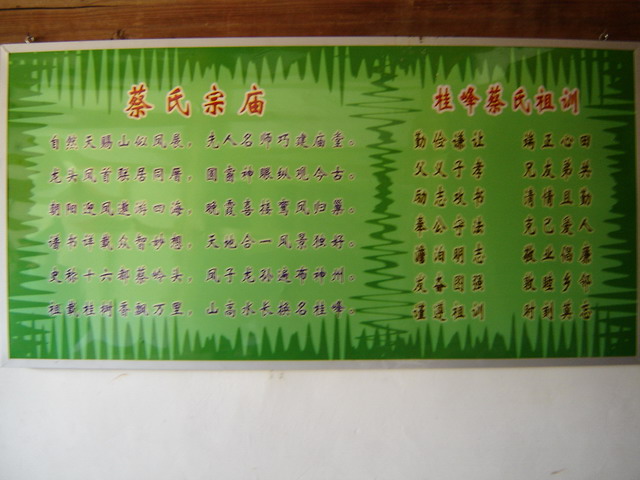 蔡氏宗庙
自然天赐山似凤展，先人名师巧建庙堂。
龙头凤首联居同厝，围窗神赈纵观今古。
朝阳迎凤遨游四海，晚霞喜接鸾凤归巢。
谱书详载众智妙想，天地合一风景独好。
史称十六都蔡岭头，凤子龙孙遍布神州。
祖载桂树香飘万里，山高水长换名桂峰。
桂峰蔡氏祖训
勤俭谦让 端正心田
父义子孝 兄友弟共
励志攻书 清慎且勤
奉公守法 克己爱人
澹泊明志 敬业倡廉
发奋图强 敦睦乡邻
谨遵祖训 时刻莫忘